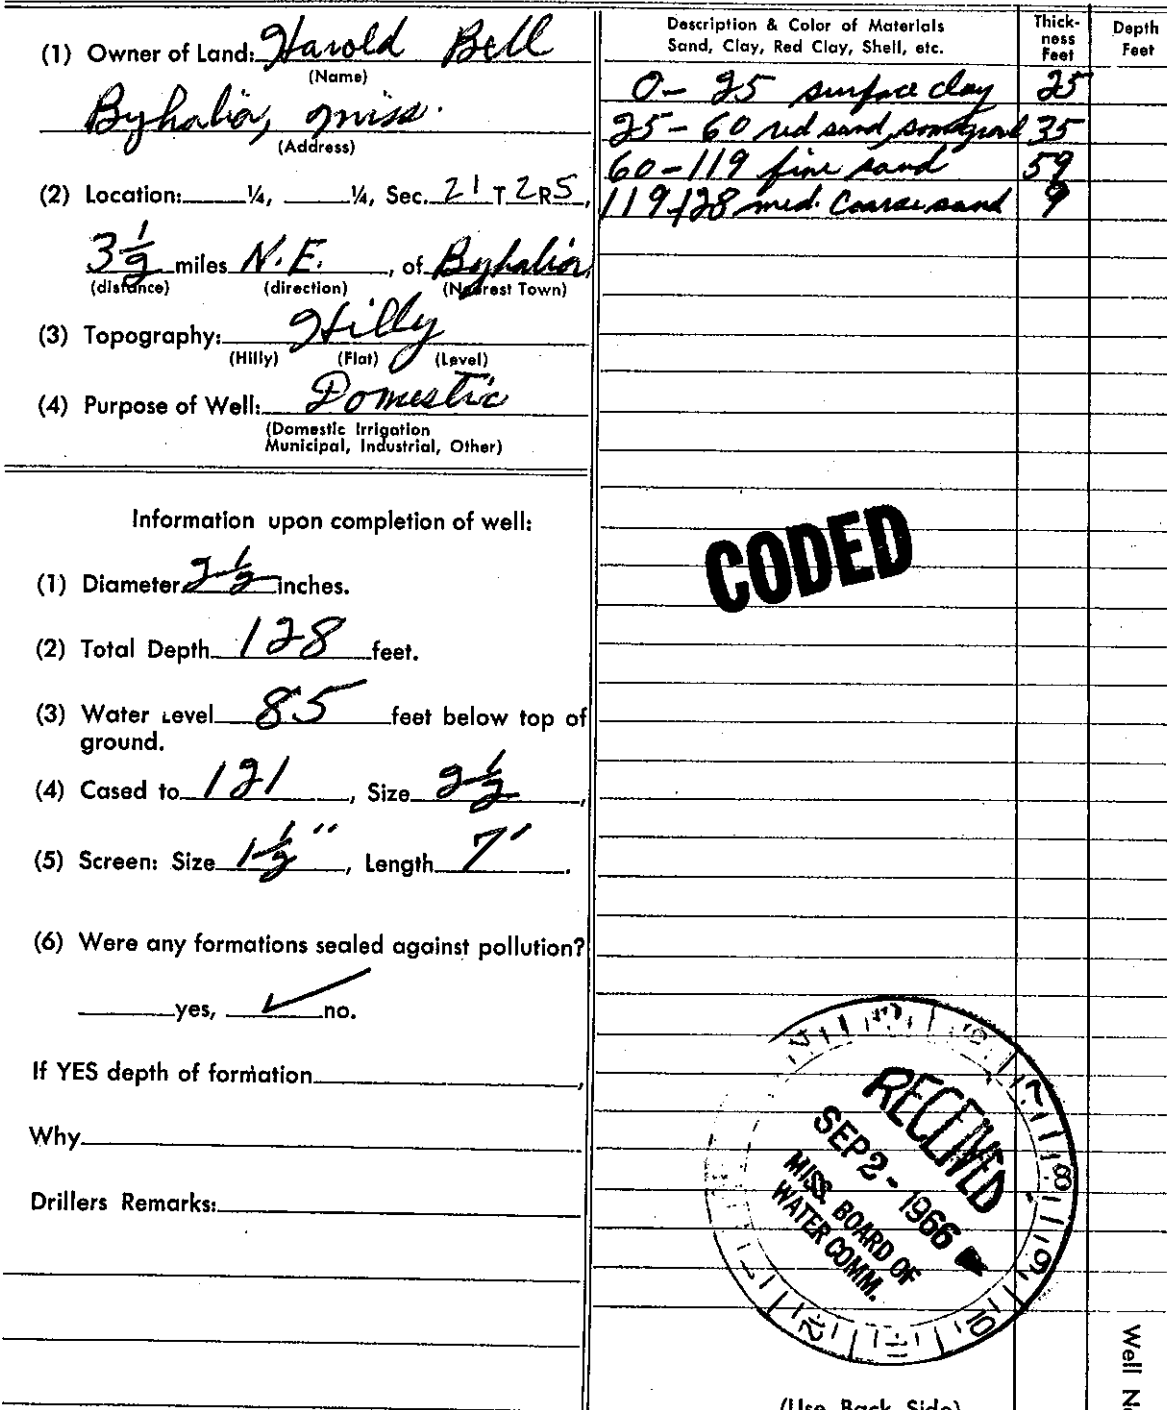 (1) Owner of Land: Harold Bell
(Name)
Byhalia, Miss.
(Address)
(2) Location: ¼, ¼, Sec. 21 T 2 R 5,
3 1/2 miles N.E., of Byhalia,
(distance) (direction) (Nearest Town)
(3) Topography: Hilly
(Hilly) (Flat) (Level)
(4) Purpose of Well: Domestic
(Domestic Irrigation
Municipal, Industrial, Other)
Information upon completion of well:
(1) Diameter 2 1/2 inches.
(2) Total Depth 128 feet.
(3) Water Level 85 feet below top of
ground.
(4) Cased to 121, Size 2 1/2,
(5) Screen: Size 1 1/2", Length 7'.
(6) Were any formations sealed against pollution?
yes, ✓ no.
If YES depth of formation,
Why
Drillers Remarks:
Description & Color of Materials
Sand, Clay, Red Clay, Shell, etc.
Thick-
ness
Feet
Depth
Feet
0- 25 surface clay 25
25-60 red sand, some gravel 35
60-119 fine sand 59
119-128 med. Coarse sand 9
CODED
RECEIVED
SEP 2 - 1966
MISS. BOARD OF
WATER COMM.
7 8 9 10 11 12
(Use Back Side)
Well No